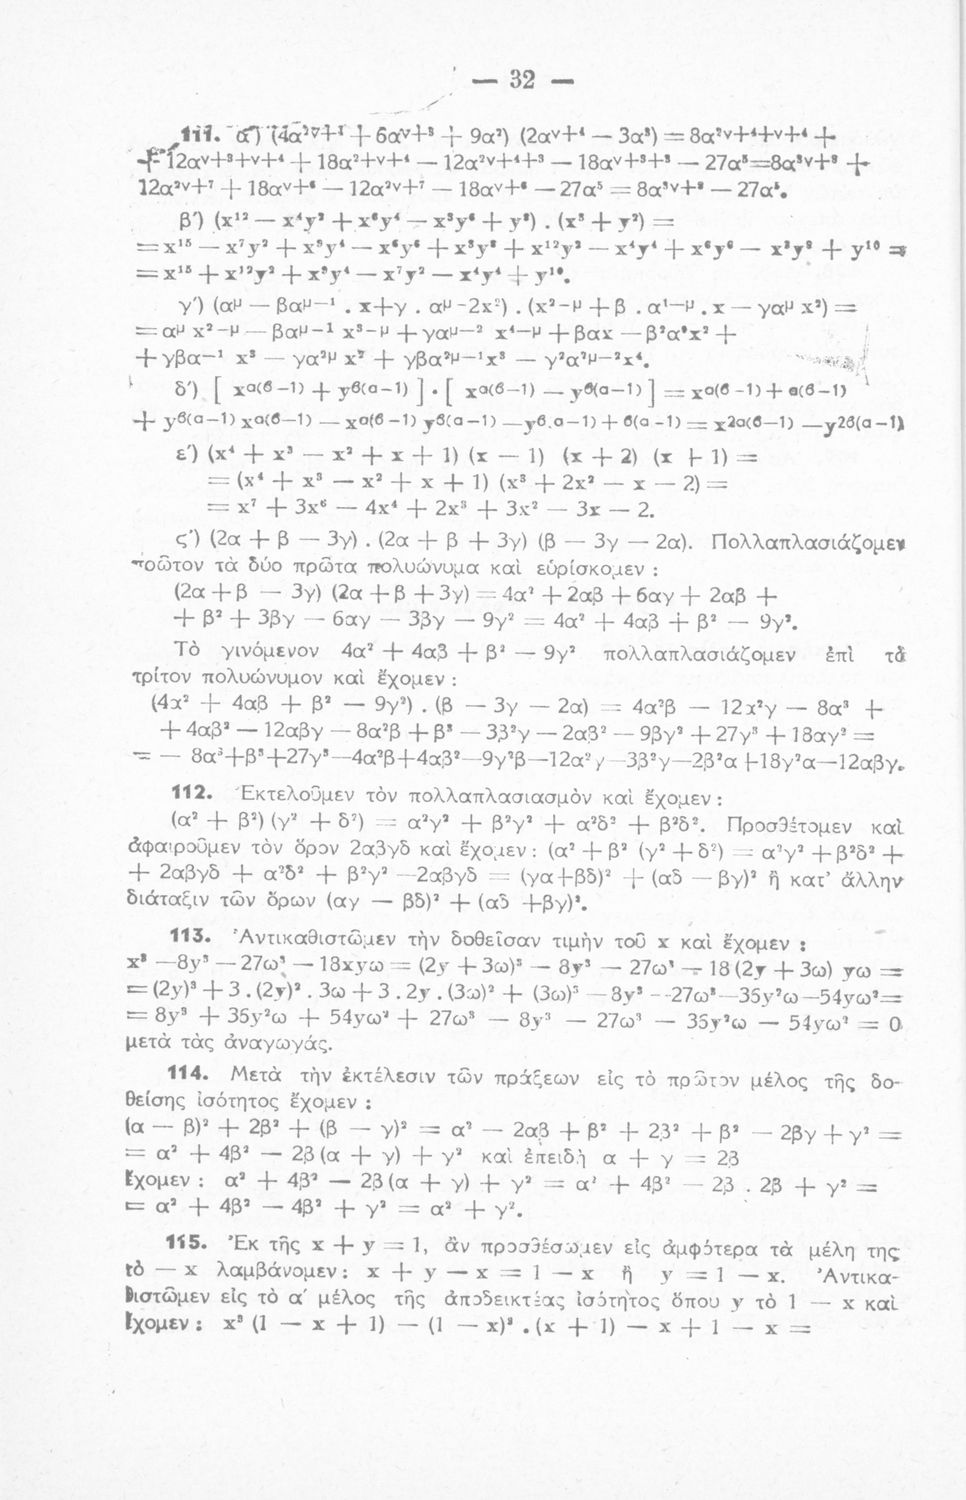 — 32 —
111. α') (4α²ᵛ⁺¹ + 6αᵛ⁺³ + 9α²) (2αᵛ⁺⁴ — 3α³) = 8α²ᵛ⁺⁴⁺ᵛ⁺⁴ +
+ 12αᵛ⁺³⁺ᵛ⁺⁴ + 18α²⁺ᵛ⁺⁴ — 12α²ᵛ⁺⁴⁺³ — 18αᵛ⁺³⁺³ — 27α⁵=8α³ᵛ⁺⁸ +
12α²ᵛ⁺⁷ + 18αᵛ⁺⁶ — 12α²ᵛ⁺⁷ — 18αᵛ⁺⁶ — 27α⁵ = 8α³ᵛ⁺⁸ — 27α⁵.
β') (x¹² — x⁴y² + x⁶y⁴ — x³y⁶ + y⁸) . (x³ + y²) =
= x¹⁵ — x⁷y² + x⁹y⁴ — x⁶y⁶ + x³y⁸ + x¹²y² — x⁴y⁴ + x⁶y⁶ — x³y⁸ + y¹⁰ =
= x¹⁵ + x¹²y² + x⁹y⁴ — x⁷y² — x⁴y⁴ + y¹⁰.
γ') (αᵘ — βαᵘ⁻¹ . x+γ . αᵘ⁻²x²) . (x²⁻ᵘ + β . α¹⁻ᵘ . x — γαᵘ x²) =
= αᵘ x²⁻ᵘ — βαᵘ⁻¹ x³⁻ᵘ + γαᵘ⁻² x⁴⁻ᵘ + βαx — β²α⁰x² +
+ γβα⁻¹ x³ — γα²ᵘ x² + γβα²ᵘ⁻¹x³ — γ²α²ᵘ⁻²x⁴.
δ') [ xα(β–1) + yβ(α–1) ] . [ xα(β–1) — yβ(α–1) ] = xα(β–1) + α(β–1)
+ yβ(α–1) xα(β–1) — xα(β–1) yβ(α–1) — yβ.α–1) + β(α–1) = x2α(β–1) — y2β(α–1)
ε') (x⁴ + x³ — x² + x + 1) (x — 1) (x + 2) (x + 1) =
= (x⁴ + x³ — x² + x + 1) (x³ + 2x² — x — 2) =
= x⁷ + 3x⁶ — 4x⁴ + 2x³ + 3x² — 3x — 2.
ς') (2α + β — 3γ) . (2α + β + 3γ) (β — 3γ — 2α). Πολλαπλασιάζομεν
πρῶτον τὰ δύο πρῶτα πολυώνυμα καὶ εὑρίσκομεν :
(2α + β — 3γ) (2α + β + 3γ) = 4α² + 2αβ + 6αγ + 2αβ +
+ β² + 3βγ — 6αγ — 3βγ — 9γ² = 4α² + 4αβ + β² — 9γ².
Τὸ γινόμενον 4α² + 4αβ + β² — 9γ² πολλαπλασιάζομεν ἐπὶ τὸ
τρίτον πολυώνυμον καὶ ἔχομεν :
(4α² + 4αβ + β² — 9γ²) . (β — 3γ — 2α) = 4α²β — 12α²γ — 8α³ +
+ 4αβ² — 12αβγ — 8α²β + β³ — 3β²γ — 2αβ² — 9βγ² + 27γ³ + 18αγ² =
= — 8α³+β³+27γ³—4α²β+4αβ²—9γ²β—12α²γ—3β²γ—2β²α+18γ²α—12αβγ.
112. Ἐκτελοῦμεν τὸν πολλαπλασιασμὸν καὶ ἔχομεν :
(α² + β²) (γ² + δ²) = α²γ² + β²γ² + α²δ² + β²δ². Προσθέτομεν καὶ
ἀφαιροῦμεν τὸν ὅρον 2αβγδ καὶ ἔχομεν : (α² + β² (γ² + δ²) = α²γ² + β²δ² +
+ 2αβγδ + α²δ² + β²γ² — 2αβγδ = (γα+βδ)² + (αδ — βγ)² ἢ κατ' ἄλλην
διάταξιν τῶν ὅρων (αγ — βδ)² + (αδ +βγ)².
113. Ἀντικαθιστῶμεν τὴν δοθεῖσαν τιμὴν τοῦ x καὶ ἔχομεν :
x³ — 8y³ — 27ω³ — 18xyω = (2y + 3ω)³ — 8y³ — 27ω³ — 18 (2y + 3ω) yω =
= (2y)³ + 3 . (2y)² . 3ω + 3 . 2y . (3ω)² + (3ω)³ — 8y³ — 27ω³ — 36y²ω — 54yω² =
= 8y³ + 36y²ω + 54yω² + 27ω³ — 8y³ — 27ω³ — 36y²ω — 54yω² = 0
μετὰ τὰς ἀναγωγάς.
114. Μετὰ τὴν ἐκτέλεσιν τῶν πράξεων εἰς τὸ πρῶτον μέλος τῆς δο-
θείσης ἰσότητος ἔχομεν :
(α — β)² + 2β² + (β — γ)² = α² — 2αβ + β² + 2β² + β² — 2βγ + γ² =
= α² + 4β² — 2β (α + γ) + γ² καὶ ἐπειδὴ α + γ = 2β
ἔχομεν : α² + 4β² — 2β (α + γ) + γ² = α² + 4β² — 2β . 2β + γ² =
= α² + 4β² — 4β² + γ² = α² + γ².
115. Ἐκ τῆς x + y = 1, ἂν προσθέσωμεν εἰς ἀμφότερα τὰ μέλη της
τὸ — x λαμβάνομεν : x + y — x = 1 — x ἢ y = 1 — x. Ἀντικα-
θιστῶμεν εἰς τὸ α' μέλος τῆς ἀποδεικτέας ἰσότητος ὅπου y τὸ 1 — x καὶ
ἔχομεν : x³ (1 — x + 1) — (1 — x)³ . (x + 1) — x + 1 — x =